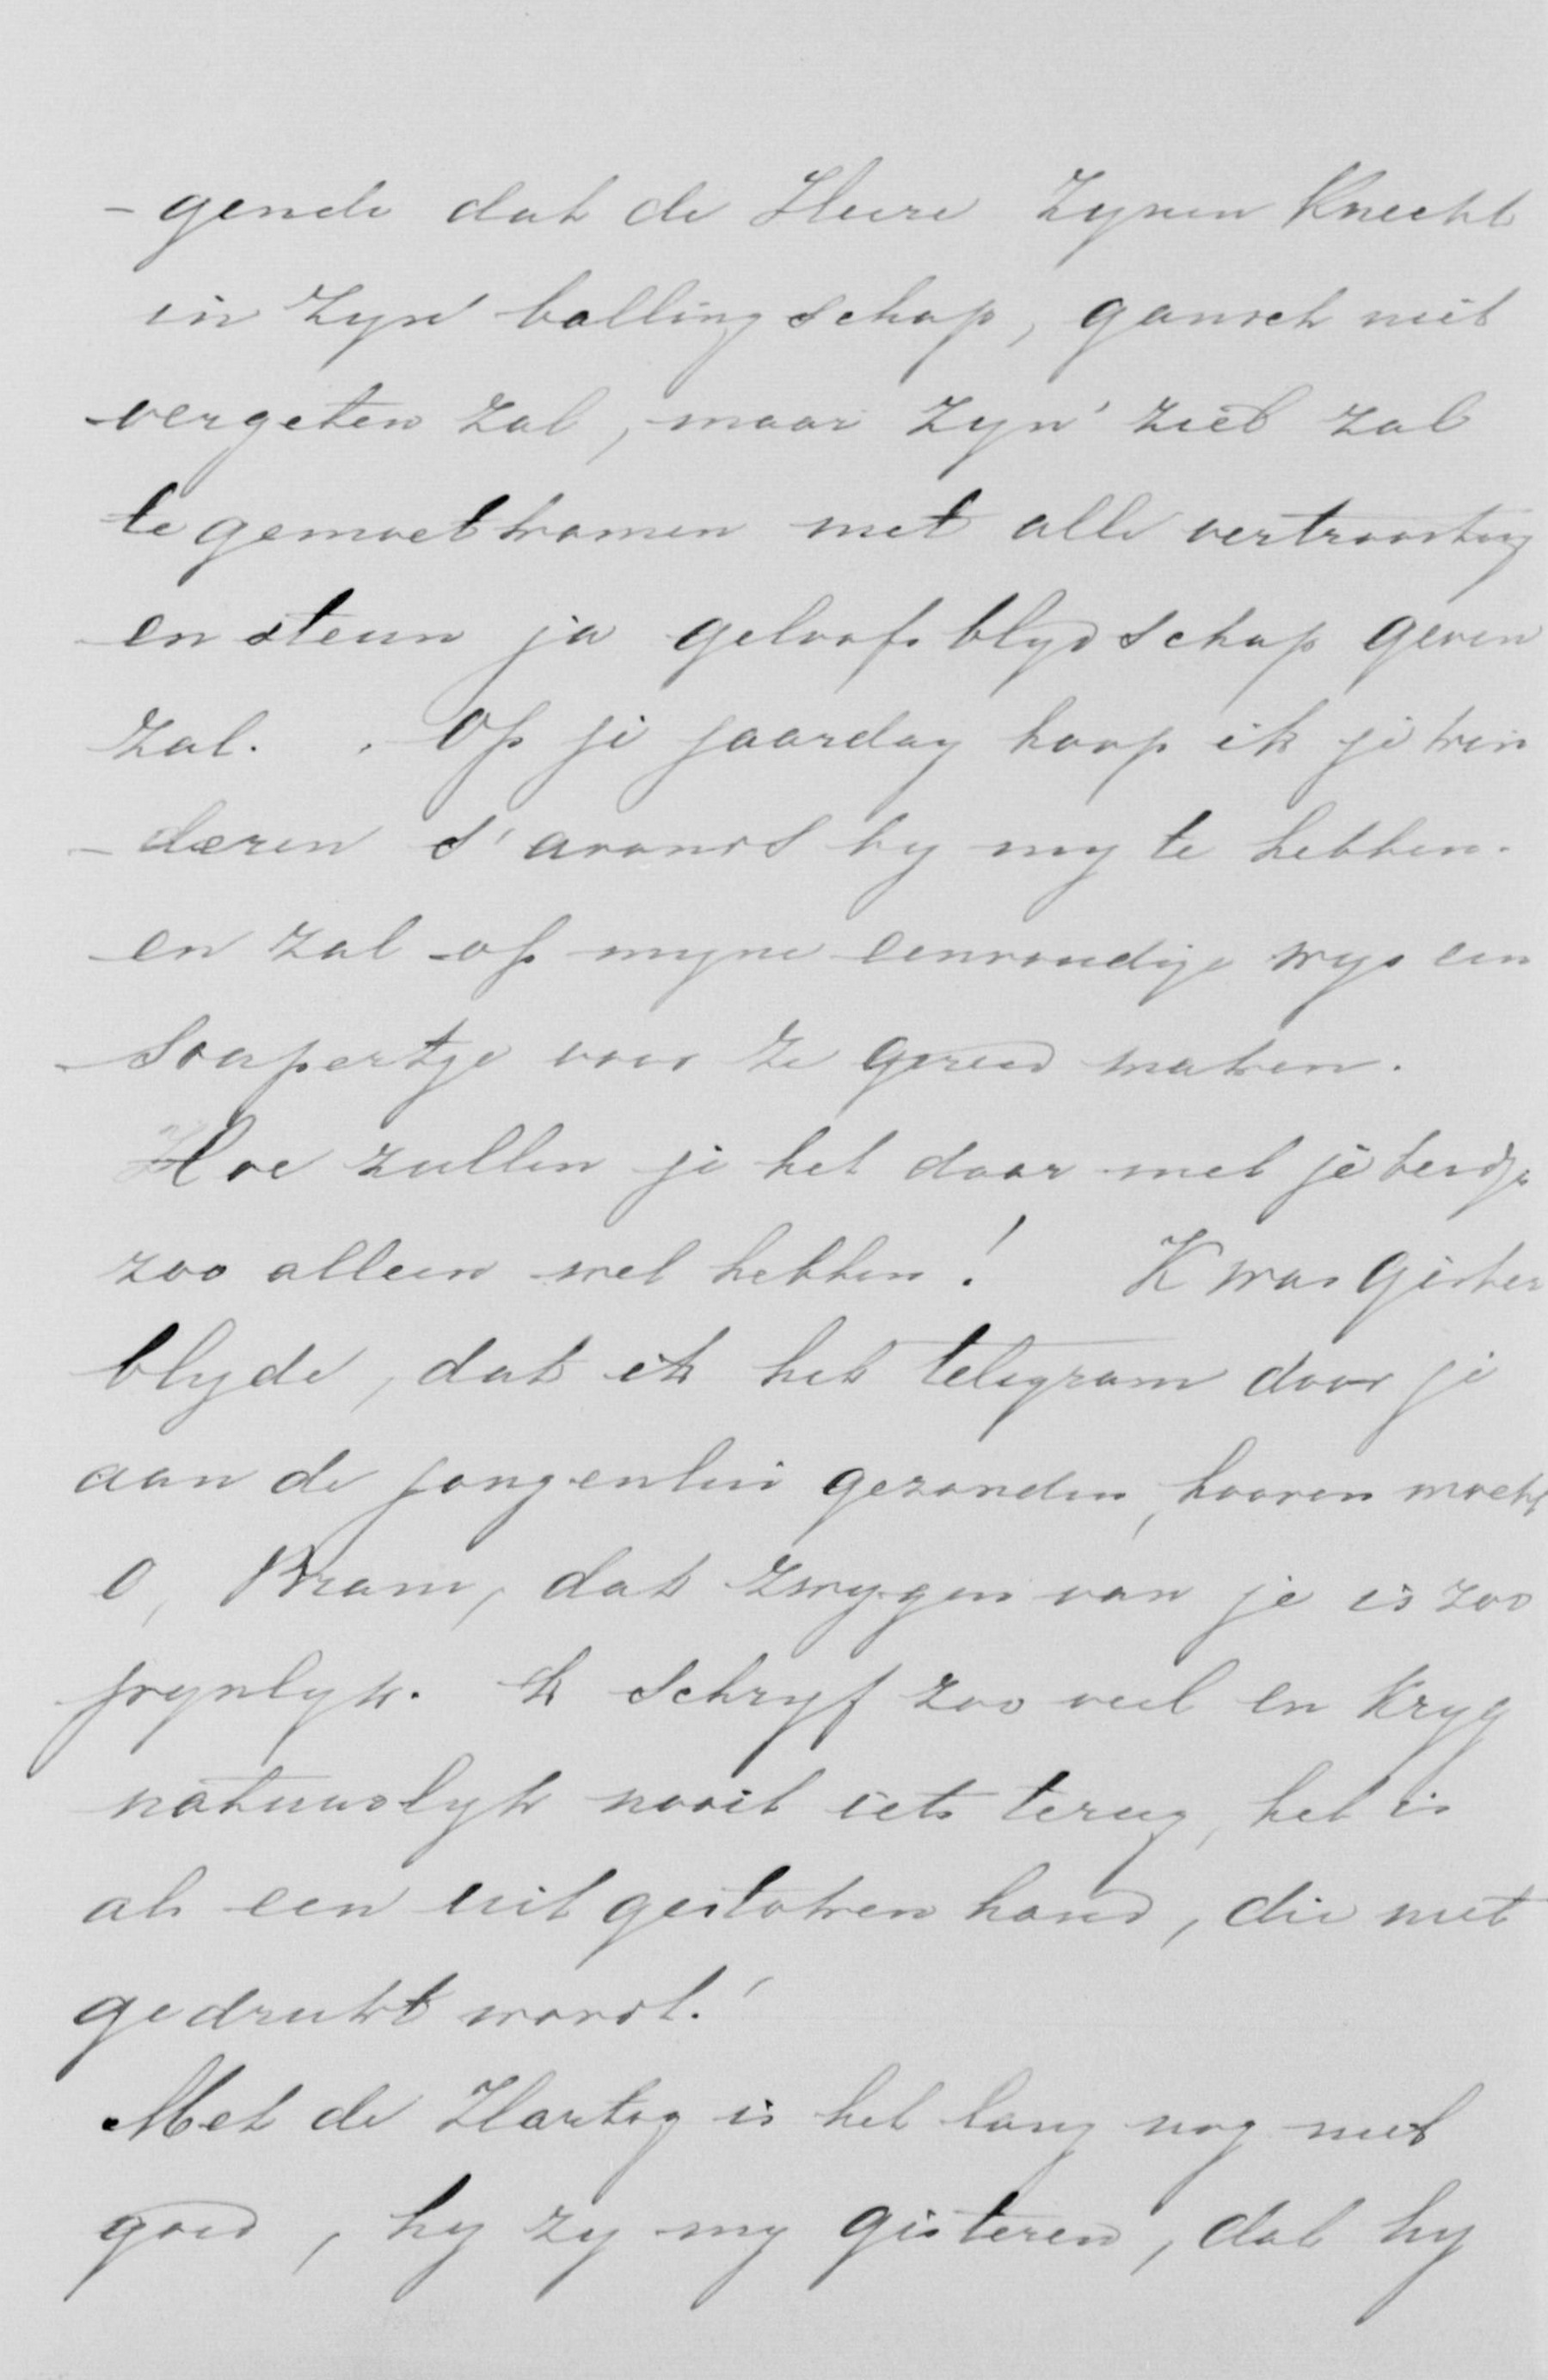 - gende dat de Heere Zynen Knecht
in Zyn' ballingschap, gansch niet
vergeten zal, maar Zyn' ziel zal
tegemoetkomen met alle vertroosting
en steun ja geloofs blydschap geven
zal. Op je jaardag hoop ik je kin
- deren s' avonds by my te hebben.
en zal op myne eenvoudige wys een
soupertje voor ze gereed maken.
Hoe zullen je het daar met je
zoo alleen wel hebben! K was gister
blyde, dat ik het telegram door je
aan de jongenlui gezonden, hooren mocht
O, Bram, dat zwygen van je is zoo
pynlyk. Ik schryf zoo veel en kryg
natuurlyk nooit iets terug, het is
als een uitgestoken hand, die niet
gedrukt wordt.!
Met de Hartog is het lang nog niet
goed, hy zy my gisteren, dat hy